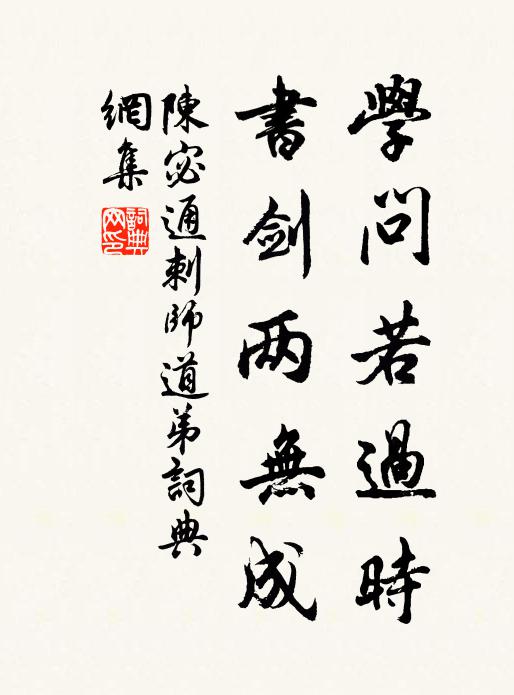 學問若過時
書剑两無成
陳宓通刺師道弟詞典
網集
詞典
网印